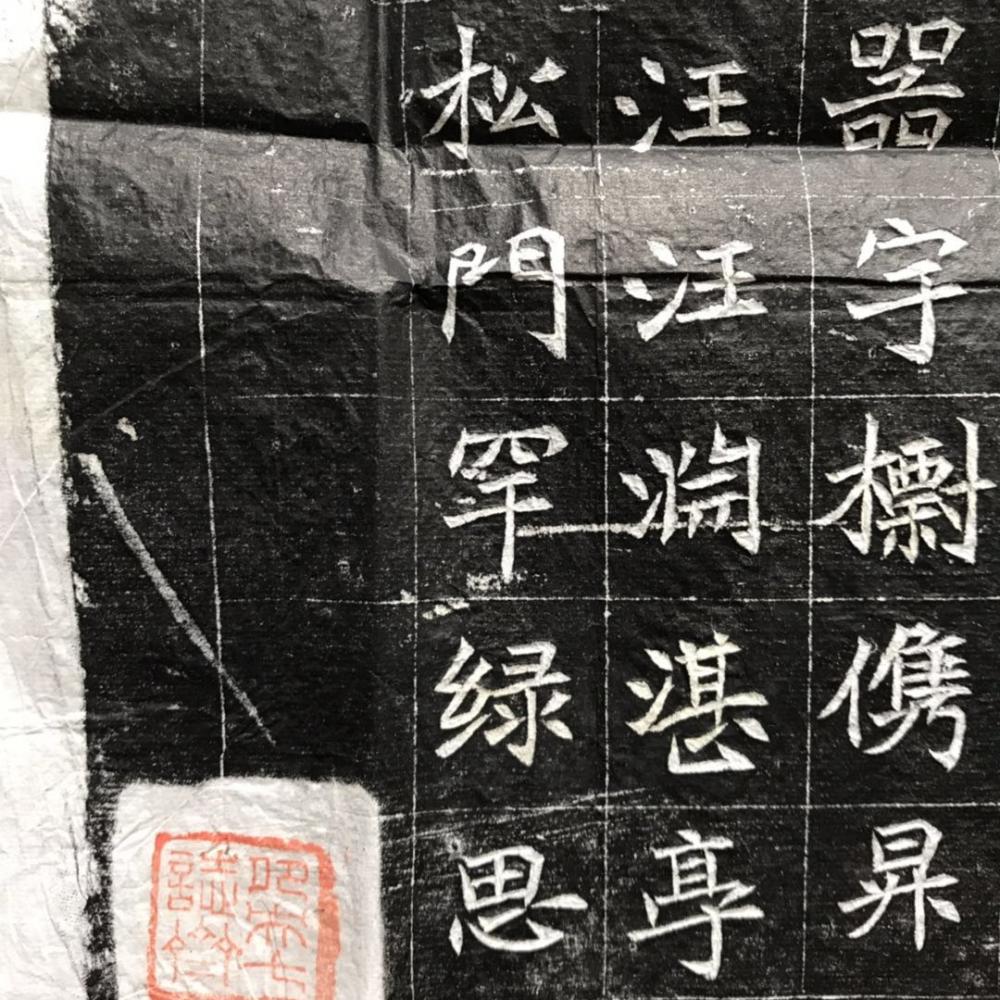 器宇標儁昇
汪汪淵湛亭
松門罕緑思